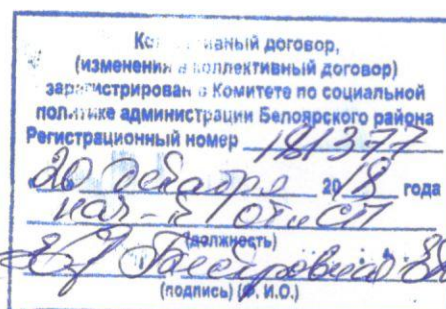 Коллективный договор,
(изменения в коллективный договор)
зарегистрирован в Комитете по социальной
политике администрации Белоярского района
Регистрационный номер 181377
20 декабря 2018 года
нач-к
(должность)
(подпись) (Ф. И.О.)